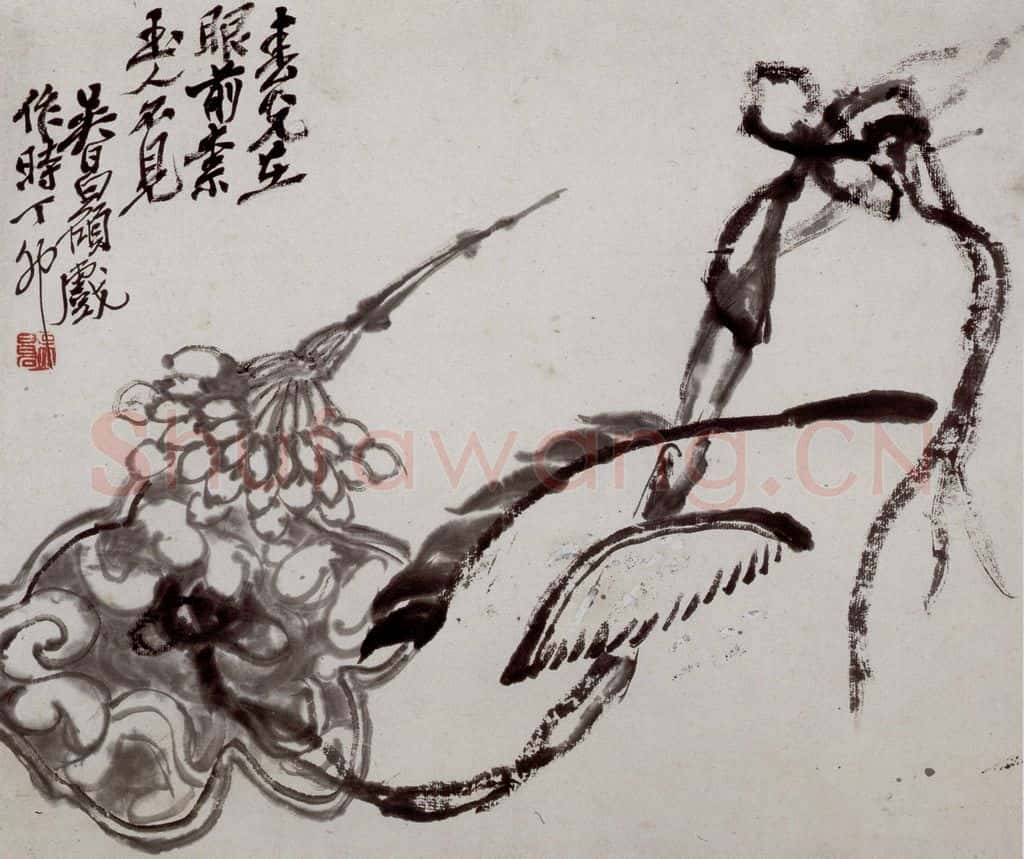 春光在
眼前柰
玉人不見
吳昌碩戲
作時丁卯
Shufawang.CN